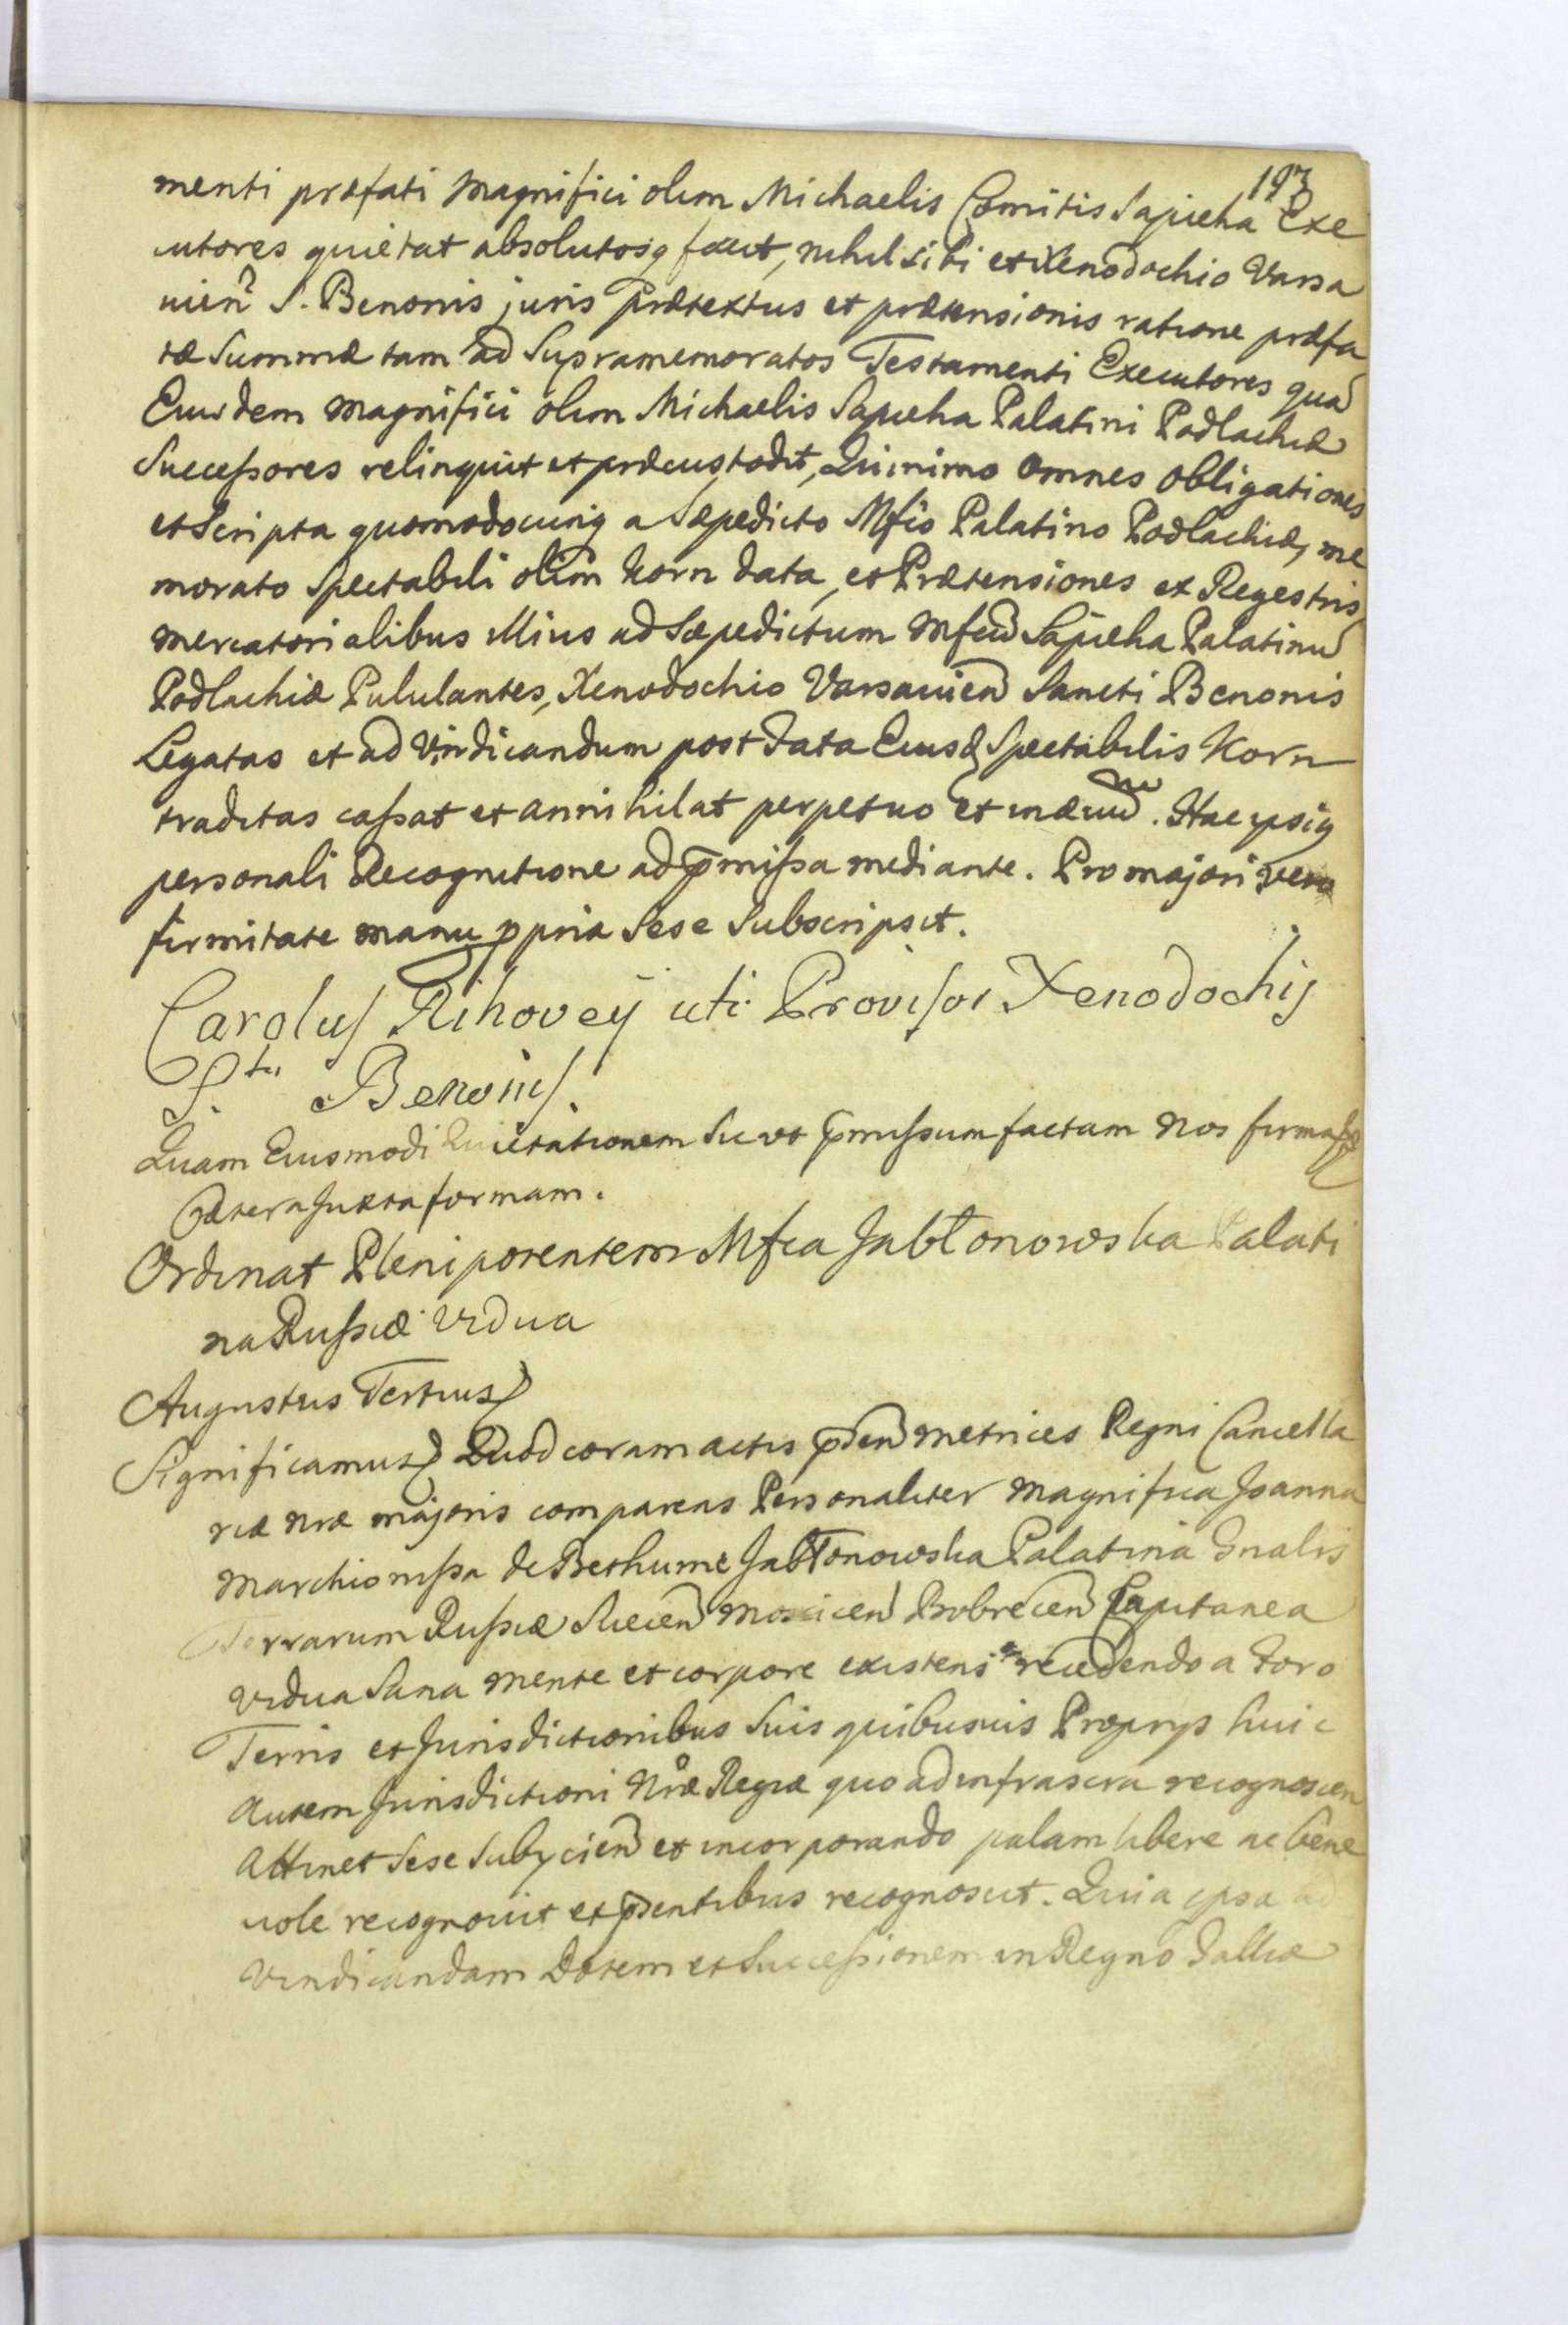 197
menti præfati Magnifici olim Michaelis Comitis Sapieha Exe
cutores quietat absolutosq facit, nihil sibi et Xenodochio Varsa
vien S. Benonis juris Prætextus et prætensionis ratione præfa
tæ Summæ tam ad Supramemoratos Testamenti Executores qua
Eiusdem Magnifici olim Michaelis Sapieha Palatini Podlachiæ
Sucessores relinquit et præcustodit, Quinimo Omnes Obligationes
et Scripta quomodocunq a Sæpedicto Mfico Palatino Podlachiæ, me
morato Spectabili olim Korn data, et Prætensiones ex Regestris
Mercatorialibus Illius ad Sæpedictum Mfcu Sapieha Palatinu
Podlachiæ Pululantes, Xenodochio Varsavien Sancti Benonis
Legatas et ad Vindicandum post data Eiusd Spectabilis Korn
traditas cassat et annihilat perpetuo et in ævu. Hac ipsiq
personali Recognitione ad pmissa mediante. Pro majori vero
firmitate manu ppria Sese Subscripsit.
Carolus Rihovey uti Provisor Xenodochij
S.ti Benonis.
Quam Eiusmodi Quietationem Sic ut pmissum factam Nos firmass
Cætera Juxta formam.
Ordinat Plenipotentem Mfca Jabłonowska Palati
na Russiæ Vidua
Augustus Tertius
Significamus Quod coram actis pden Metrices Regni Cancella
riæ nræ majoris comparens Personaliter Magnifica Joanna
Marchionissa de Bethume Jabłonowska Palatina Gnalis
Terrarum Russiæ Bobrecen Capitanea
Vidua Sana mente et corpore existens recedendo a foro
Terris et Jurisdictionibus Suis quibusvis Proprys huic
Autem Jurisdictioni Nræ Regiæ quo ad infrascra recognoscen
Attinet Sese Subycien et incorporando palam libere ac bene
vole recognovit et pdentibus recognoscit. Quia ipsa ad
Vindicandam Dotem et Successionem in Regno Galliæ